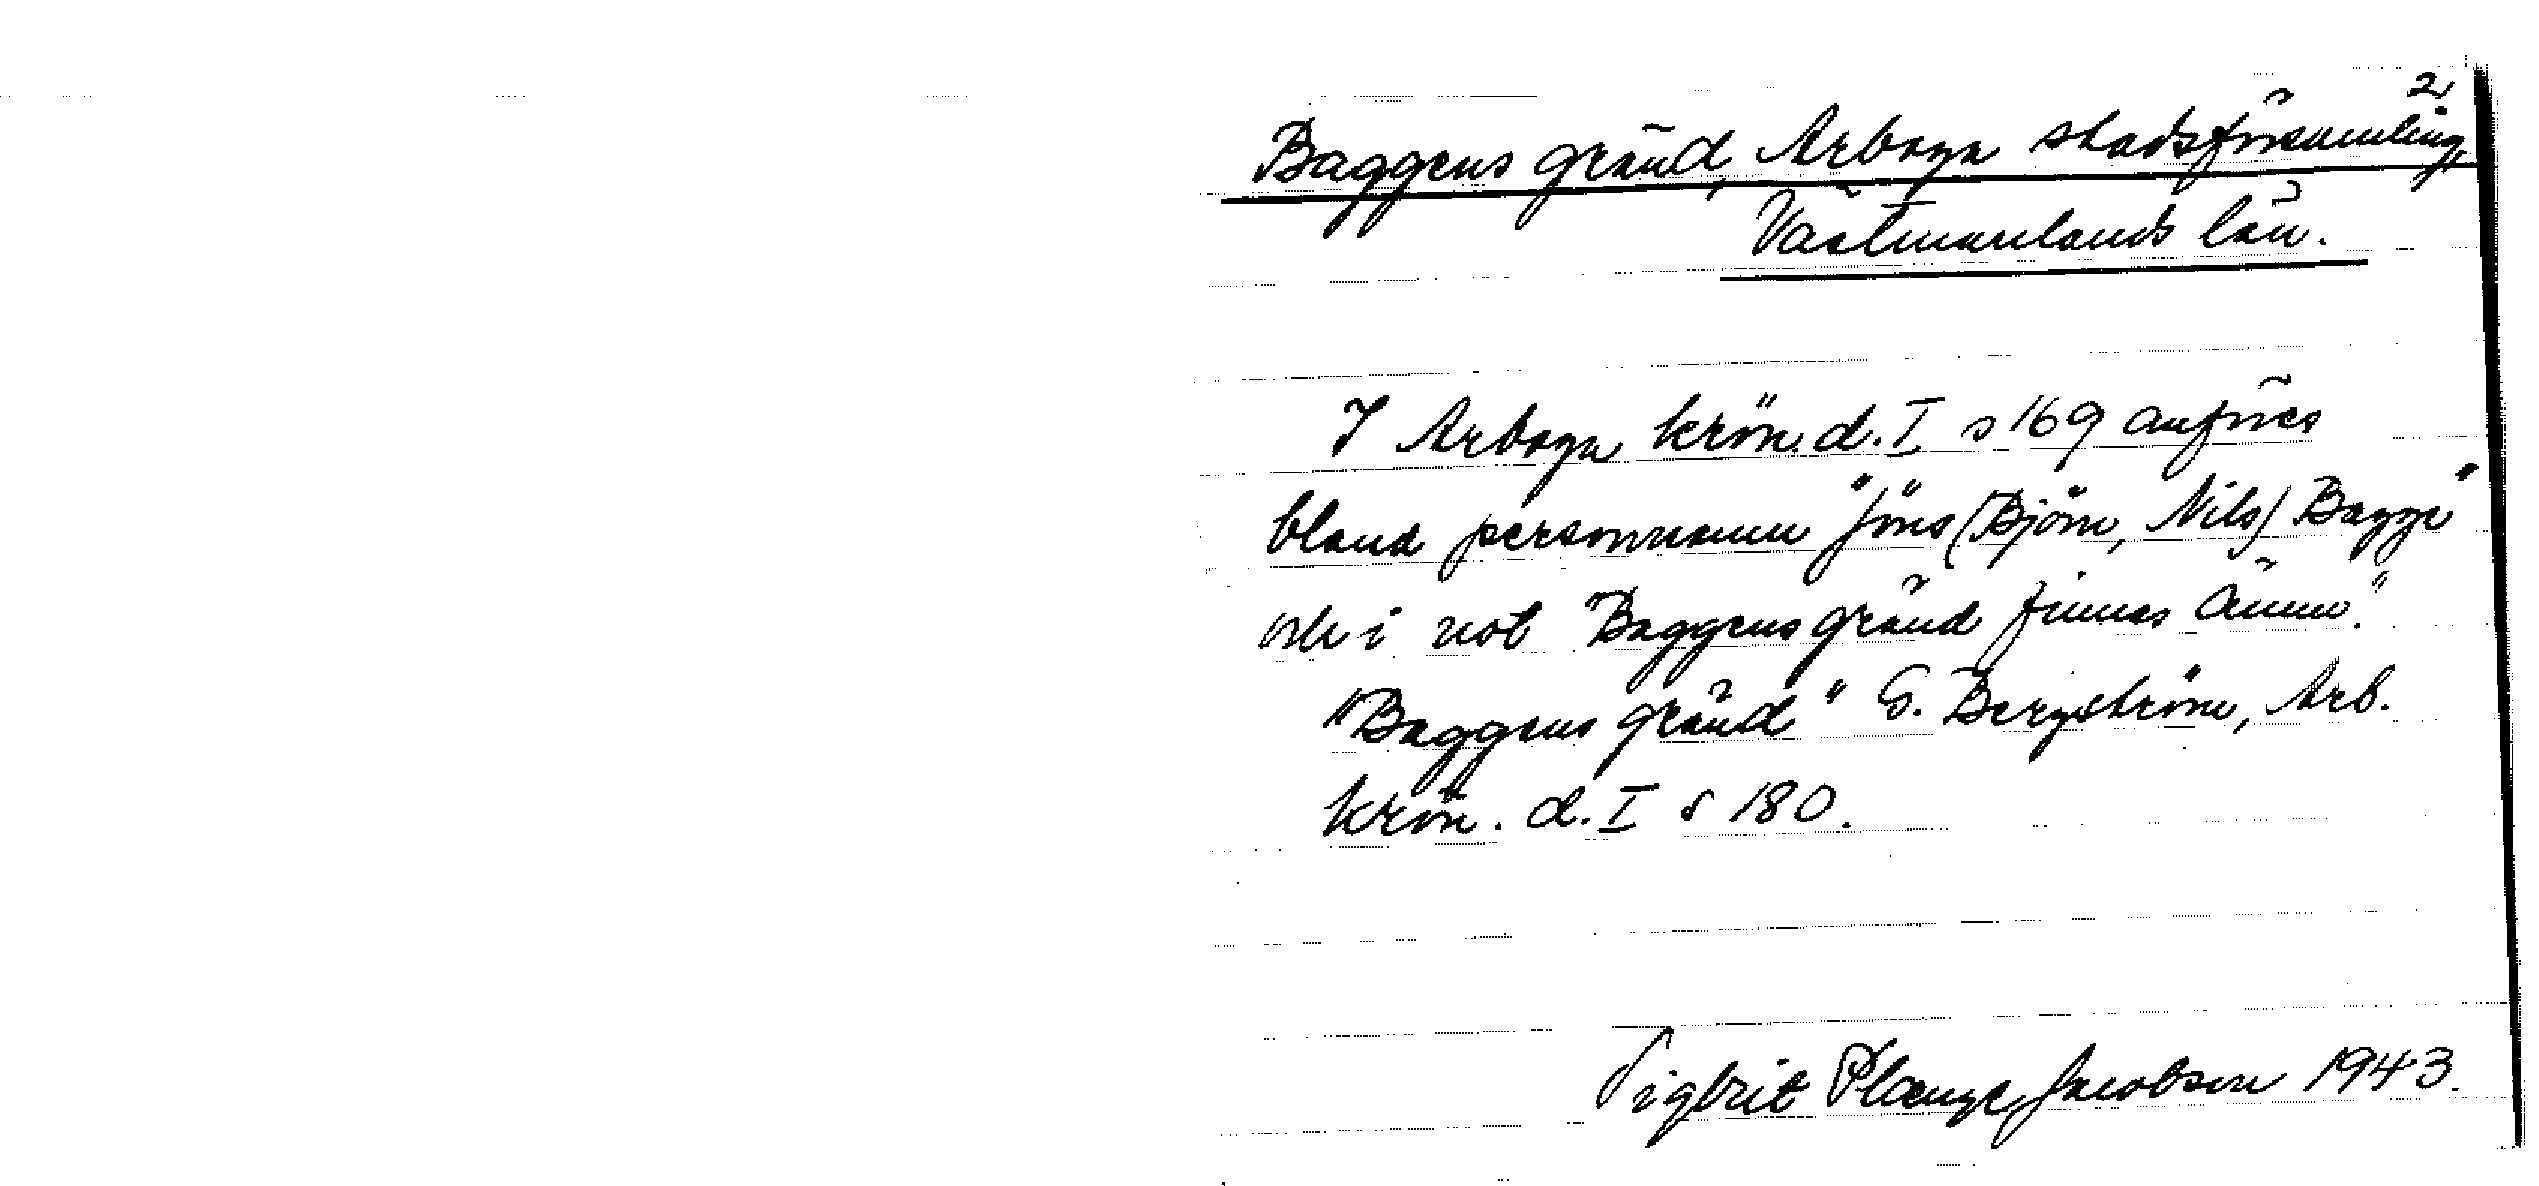 2
Baggens gränd, Arboga stadsförsamling,
Västmanlands län.
I Arboga krön. d. I s 169 anföres
bland personnamn "Jöns (Björn, Nils) Bagge"
och i not "Baggens gränd finnes ännu".
"Baggens gränd" G. Bergström, Arb.
krön. d. I s 180.
Sigbrit Plænge Jacobson 1943.